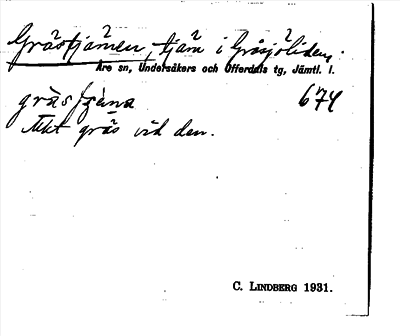 Gråstjärnen, tjärn i Gråsjöliden.
Åre sn, Undersåkers och Offerdals tg, Jämtl. l.
674
Mkt gräs vid den.
C. LINDBERG 1931.